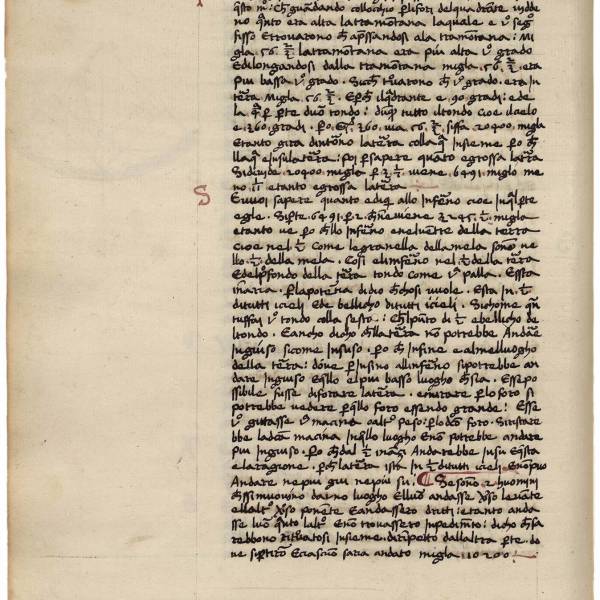 q̄sto m̄: Ch̄ guardando collocchio p̄ lifori del quadrāte vidde
no q̄nto era alta latramōtana laquale e 1° seg°
fisso Etrovarono ch̄ apressandosi ala tramōtana: Mi
gla .56. 2/3 latramōtana era piu alta 1° grado
Edilongandosi dalla tramōtana migla .56. 2/3 era
piu bassa 1° grado. Sich̄ truarono ch̄ 1° grado. era in
tēra Migla .56. 2/3. Ep̄ch̄ ilq̄drante e .90. gradi: ede
la q̄rta pte duō tondo: dūq̄ tutto iltondo cioe ilcielo
e .360. gradi. p̄o .360. via .56. 2/3 siffa 20400. migla
Etanto gira dintōno latēra collaq̄ insieme p̄o ch̄
llaq̄ einsulatēra: Poi p̄ sapere quāto egrossa latēra
Sidivide .20400. migla p̄ 3. 1/7 viene .6491. miglo me
no 1/11 etanto egrossa latēra
S Evuoi sapere quanto ediq̄ allo inferno cioe inq̄lpte
egle. Siptte 6491. p̄ 2. ch̄ neviene 3245. 1/2 migla
etanto ve p̄o ch̄llo inferno enelventre della terra
cioe nel 1/2 come legranella dellamela sono ne
llo .1/2. della mela. Così elinferno nel 1/2 della tēra
Edelpfondo della tēra tondo come 1ª palla. Essta
inaria. p̄ lapotentia didio ch̄ chosi vuole. Esta in .1/2
ditutti icieli Ede bellicho ditutti icieli. Sichome q̄n
tuffai 1° tondo colla sesta: Ch̄ lpūto di 1/2 ebellicho de
ltondo. Eancho dicho ch̄llatēra nō potrebbe Andare
ingiuso sicome insuso. p̄o ch̄ infine e almelluogho
della tēra: dōve p̄ insino allinferno sipotrebbe an
dare ingiuso Eq̄llo elpiu basso luogho ch̄ sia. Essepo
ssibile fusse diforare latēra. emirare p̄ lo foro si
potrebbe vedere p̄q̄llo foro essendo grande: Esse
1° gittasse 1ª macina oaltro peso: p̄ lo dc̄o foro. Sirestare
bbe ladc̄a macina inq̄llo luogho Enō potrebbe andare
piu ingiuso. p̄o ch̄ dal 1/2 inanzi Andrebbe insu Eq̄sta
elaragione. p̄ch̄ latēra ista in 1/2 ditutti icieli Enōpuo
Andare nepiu giu nepiu su. ¶ Se sono 2 huomini
ch̄ ssimuovino da uno luogho Elluno andasse v̄so levante
ellaltro v̄so ponente Eandassero dritti: etanto anda
sse luno q̄nto laltro Enō trovassero inpedimēto: dicho ch̄ sa
rebbono ritrovatosi insieme. dirimpetto dallaltra pte. do
ve siptirono Eciascuno saria andato migla .10200.